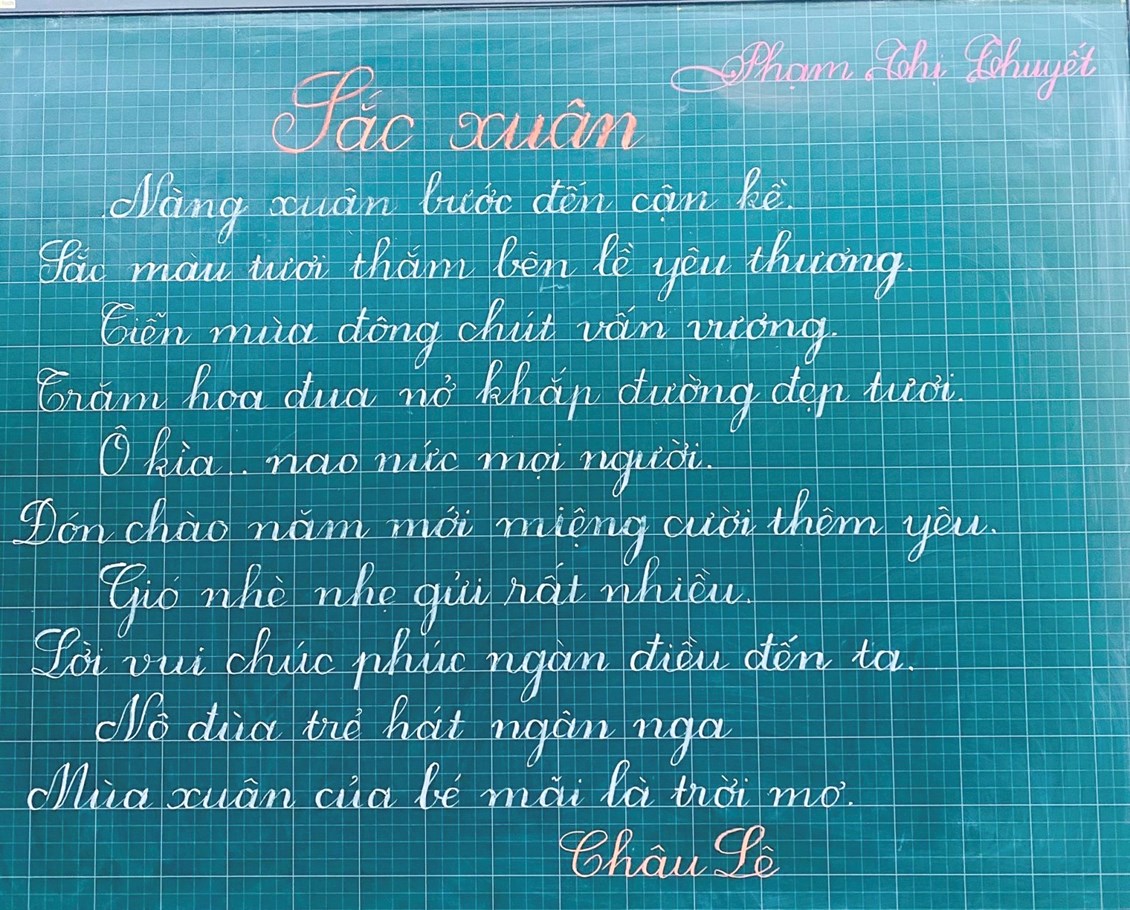 Phạm Thị Thuyết
Sắc xuân
Nàng xuân bước đến cận kề.
Sắc màu tươi thắm bên lề yêu thương.
Tiễn mùa đông chút vấn vương.
Trăm hoa đua nở khắp đường đẹp tươi.
Ô kìa.. nao nức mọi người.
Đón chào năm mới miệng cười thêm yêu.
Gió nhè nhẹ gửi rất nhiều.
Lời vui chúc phúc ngàn điều đến ta.
Nô đùa trẻ hát ngân nga
Mùa xuân của bé mãi là trời mơ.
Châu Lê